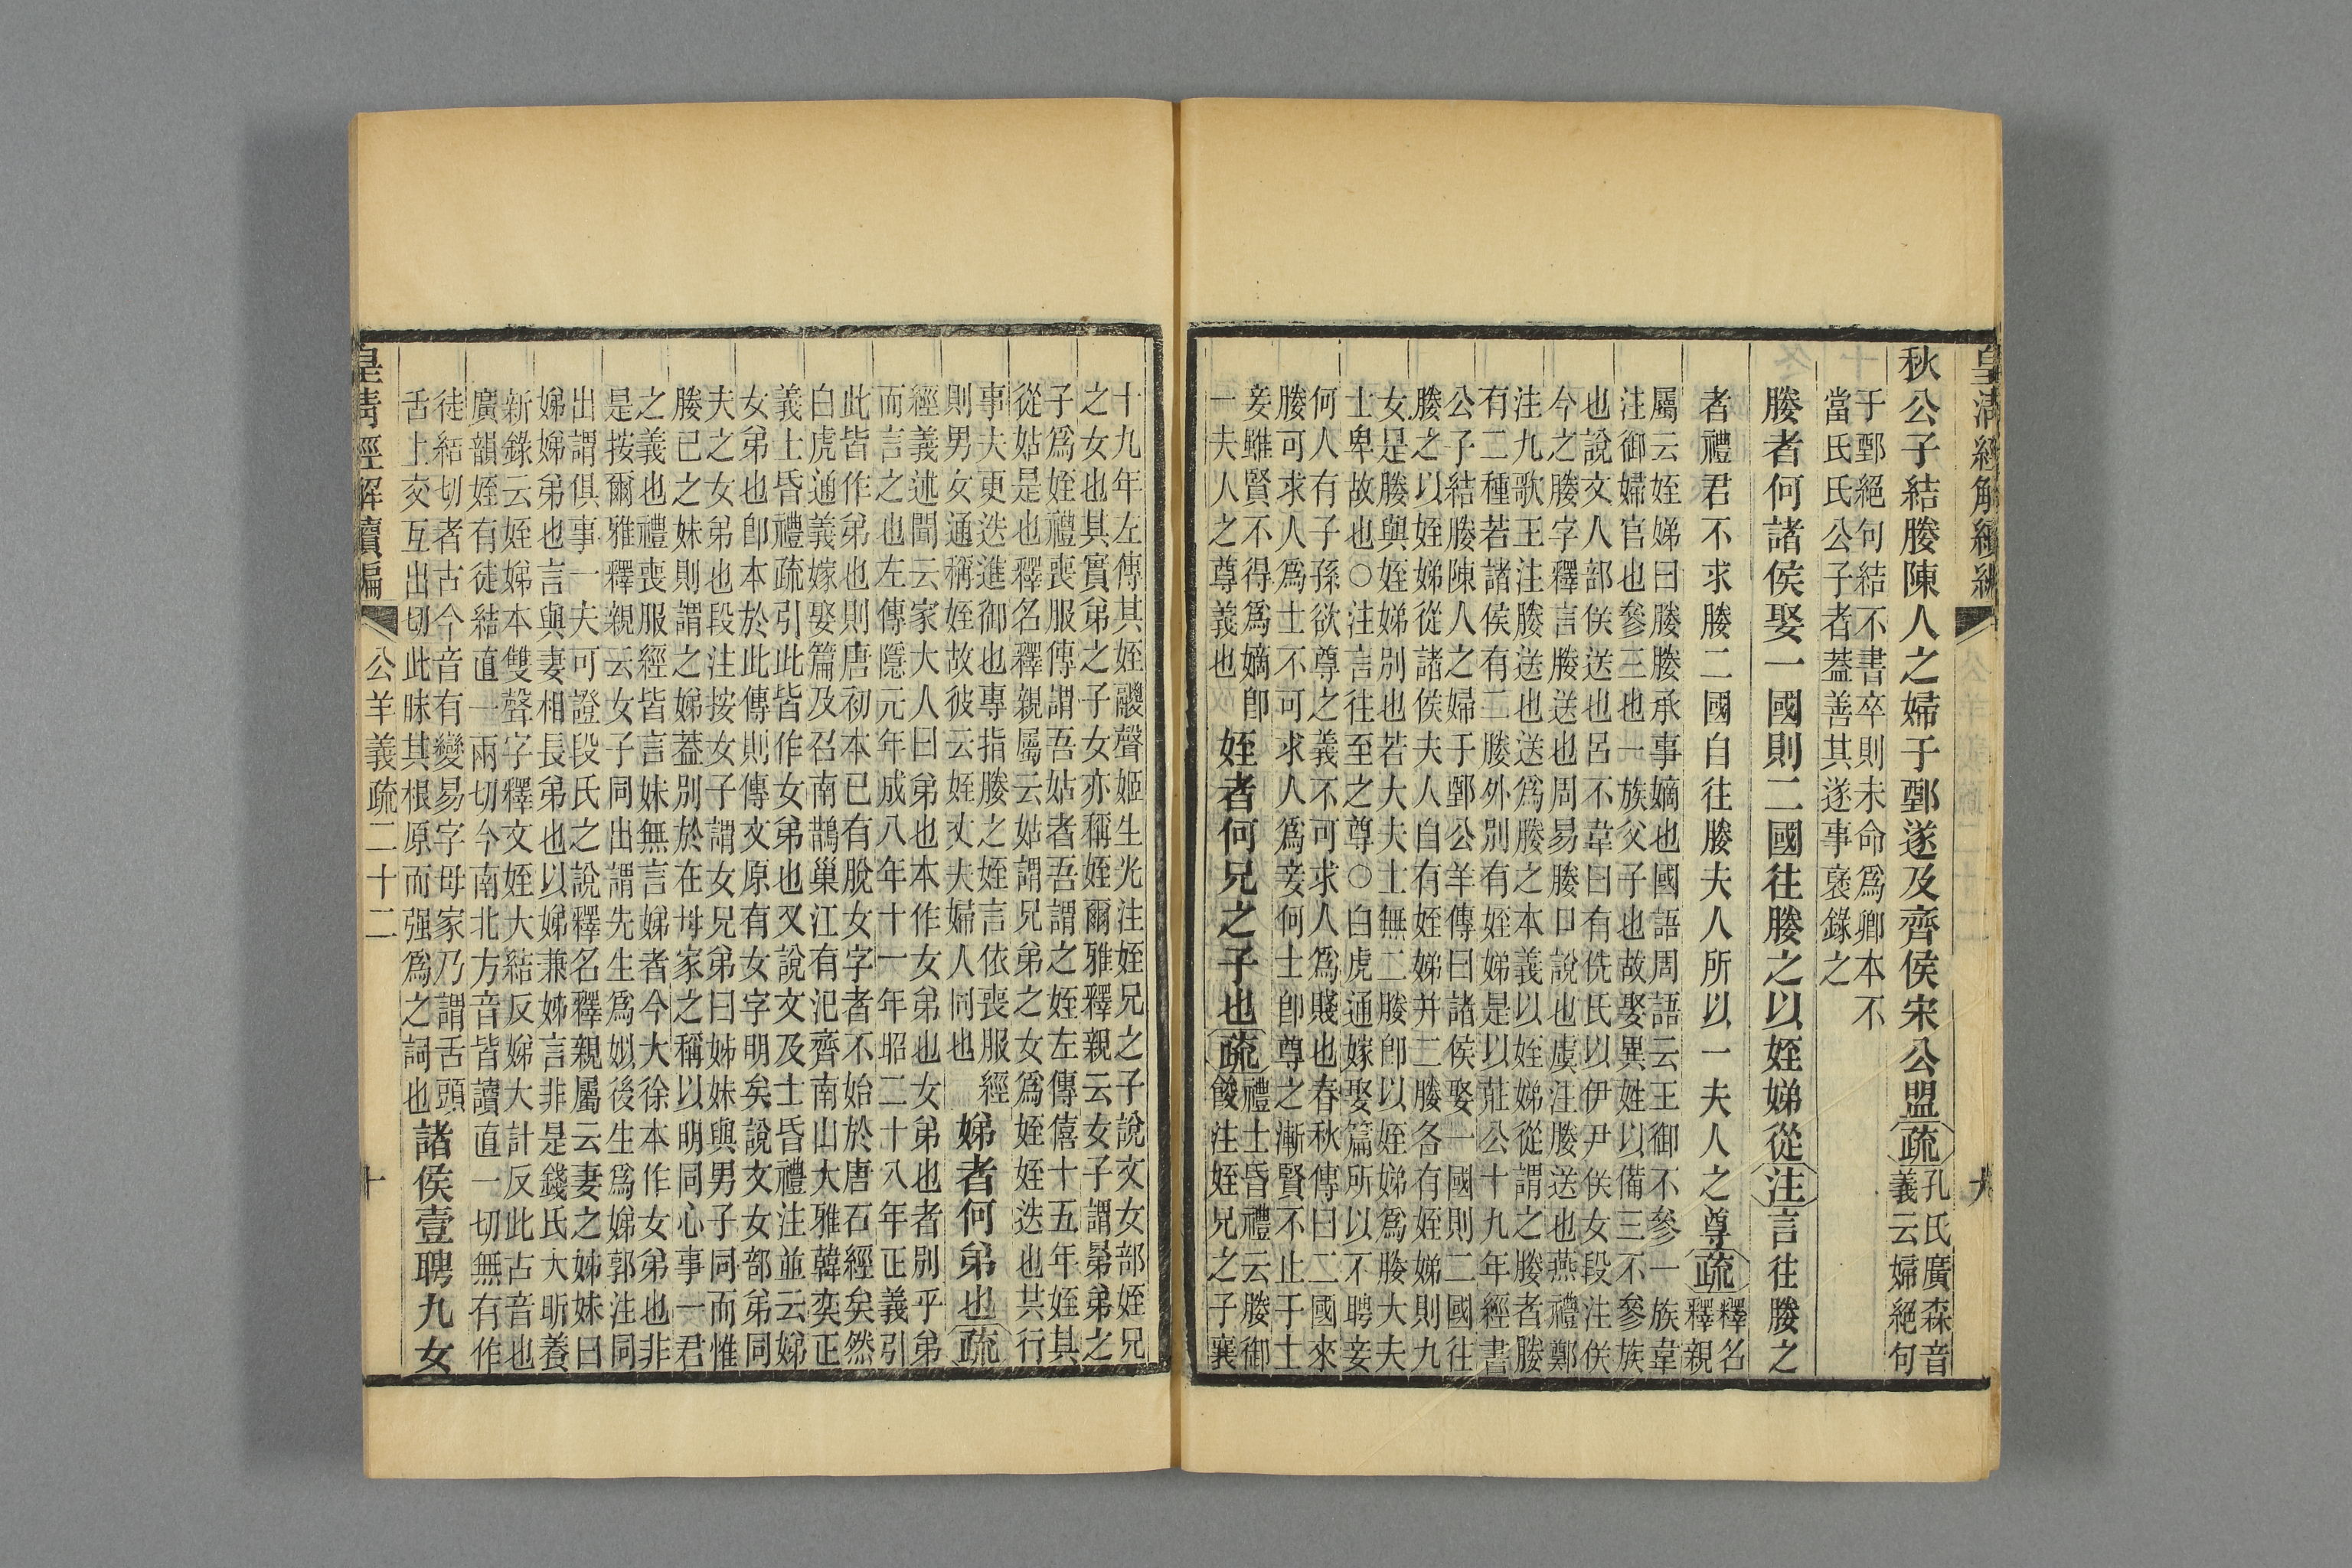 皇清經解續編
秋公子結媵陳人之婦于鄄遂及齊侯宋公盟疏孔氏廣森音
義云婦絕句
于鄄絕句結不書卒則未命爲卿本不
當氏氏公子者蓋善其遂事襃錄之
媵者何諸侯娶一國則二國往媵之以姪娣從注言往媵之
者禮君不求媵二國自往媵夫人所以一夫人之尊疏釋名
釋親
屬云姪娣曰媵媵承事嫡也國語周語云王御不參一族韋
注御婦官也參三也一族父子也故娶異姓以備三不參族
也說文人部侁送也呂不韋曰有侁氏以伊尹侁女段注侁
今之媵字釋言媵送也周易媵口說也虞注媵送也燕禮鄭
注九歌王注媵送也送爲媵之本義以姪娣從謂之媵者媵
有二種若諸侯有二媵外別有姪娣是以莊公十九年經書
公子結媵陳人之婦于鄄公羊傳曰諸侯娶一國則二國往
媵之以姪娣從諸侯夫人自有姪娣并二媵各有姪娣則九
女是媵與姪娣別也若大夫士無二媵卽以姪娣爲媵大夫
士卑故也○注言往至之尊○白虎通嫁娶篇所以不聘妾
何人有子孫欲尊之義不可求人爲賤也春秋傳曰二國來
媵可求人爲士不可求人爲妾何士卽尊之漸賢不止于士
妾雖賢不得爲嫡卽
一夫人之尊義也
姪者何兄之子也疏禮士昏禮云媵御
餕注姪兄之子襄
十九年左傳其姪鬷聲姬生光注姪兄之子說文女部姪兄
之女也其實弟之子女亦稱姪爾雅釋親云女子謂晜弟之
子爲姪禮喪服傳謂吾姑者吾謂之姪左傳僖十五年姪其
從姑是也釋名釋親屬云姑謂兄弟之女爲姪姪迭也共行
事夫更迭進御也專指媵之姪言依喪服經
則男女通稱姪故彼云姪丈夫婦人同也
娣者何弟也疏
經義述聞云家大人曰弟也本作女弟也女弟也者別乎弟
而言之也左傳隱元年成八年十一年昭二十八年正義引
此皆作弟也則唐初本已有脫女字者不始於唐石經矣然
白虎通義嫁娶篇及召南鵲巢江有汜齊南山大雅韓奕正
義上昏禮疏引此皆作女弟也又說文及士昏禮注並云娣
女弟也卽本於此傳則傳文原有女字明矣說文女部弟同
夫之女弟也段注按女子謂女兄弟曰姊妹與男子同而惟
媵已之妹則謂之娣蓋別於在母家之稱以明同心事一君
之義也禮喪服經皆言妹無言娣者今大徐本作女弟也非
是按爾雅釋親云女子同出謂先生爲姒後生爲娣郭注同
出謂俱事一夫可證段氏之說釋名釋親屬云妻之姊妹曰
娣娣弟也言與妻相長弟也以娣兼姊言非是錢氏大昕養
新錄云姪娣本雙聲字釋文姪大結反娣大計反此古音也
廣韻姪有徒結直一兩切今南北方音皆讀直一切無有作
徒結切者古今音有變易字母家乃謂舌頭
舌上交互出切此昧其根原而强爲之詞也
諸侯壹聘九女
皇清經解續編 公羊義疏二十二 十